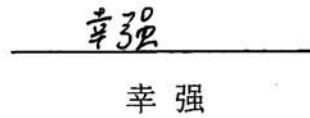 幸强
幸 强